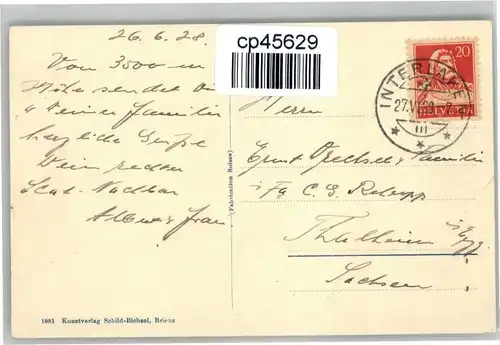 26.6.28.
Von 3500 m
Höhe sendet Dir
u. Deiner Familie
herzliche Grüße
Dein rechter
Skat-Nachbar
Albert & Frau
cp45629
20
HELVETIA
INTERLAKEN
27.VI.28
III
Herrn
Ernst & Familie
i/Fa C. G.
Thalheim
Sachsen
(Fabrication Suisse)
1081 Kunstverlag Schild-Bichsel, Brienz